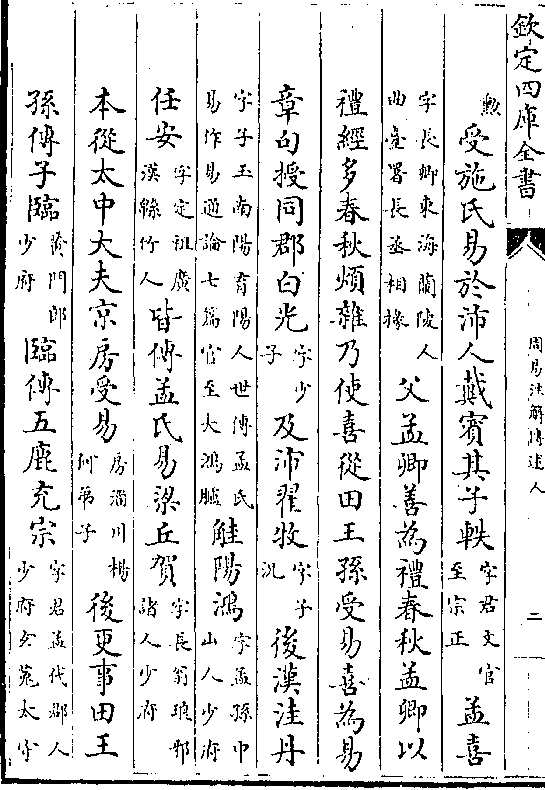 欽定四庫全書 周易注解傳述人 二
勲受施氏易於沛人戴賓其子軼字君文官至宗正孟喜
字長卿東海蘭陵人曲臺署長丞相掾父孟卿善為禮春秋孟卿以
禮經多春秋煩雜乃使喜從田王孫受易喜為易
章句授同郡白光字少子及沛翟牧字子況後漢洼丹
字子玉南陽育陽人世傳孟氏易作易通論七篇官至大鴻臚觟陽鴻字孟孫中山人少府
任安字定祖廣漢緜竹人皆傳孟氏易梁丘賀字長翁琅邪諸人少府
本從太中大夫京房受易房淄川楊何弟子後更事田王
孫傳子臨黄門郎少府臨傳五鹿充宗字君孟代郡人少府玄菟太守